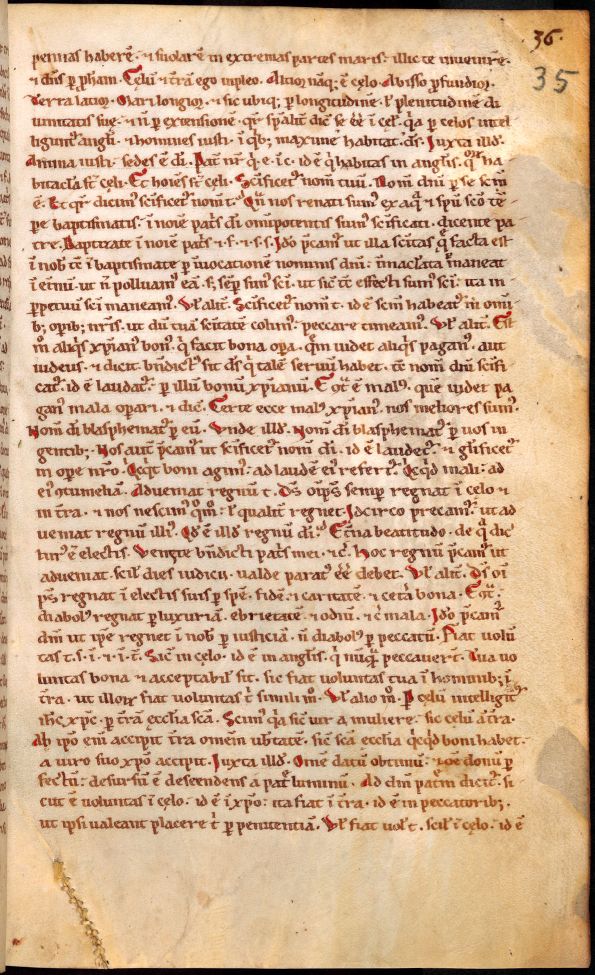 36.
35
pennas haberē. ⁊ uolarē in extremas partes maris. illic te inuenirē.
⁊ dn̄s ꝑ ꝓph̄am. Celū ⁊ t̄rā ego inpleo. Altior nāq; ē cęlo. Abisso ꝓfundior.
Terra latior. Mari longior. ⁊ sic ubiq; ꝑ longitudinē ł plenitudinē di
uinitatis suę. ⁊ n̄ ꝑ extensionē. qͬ sp̄alit̄ dic̄ se ēē ī cęł. qͣ ꝑ celos intel
ligunt᷑ angłi. ⁊ homines iusti. ī qͥb; maxime habitat ds̄. Iuxta illđ.
Anima iusti sedes ē dī. Pat̄ nr̄ q. e. i. c. id ē qͥ habitas in anglis.
bitacła st̄ cęli. Et hoīes st̄ cęli. Sc̄ificet᷑ nom̄ tuū. Nom̄ dn̄i ꝑ se sc̄m
ē. Et qͬ dicim᷒ sc̄ificet᷑ nom̄ t. Qm̄ nos renati sum᷒ ex aqͣ ⁊ sp̄u sc̄o tē
pe baptismatis. ī noīe pat̄s dī omīpotentis sum᷒ sc̄ificati. dicente pa
tre. Baptizate ī noīe pat̄s ⁊ f. ⁊ s. s. Iđo p̄cam᷒ ut illa sc̄itas qͣ facta est
ī nob̄ tē ī baptismate ꝑ īuocationē nominis dn̄i. īmaclata maneat
ut n̄ polluam᷒ eā. s. sēꝑ sim᷒ sc̄i. ut sic̄ tē effecti sum᷒ sc̄i. ita in
ꝑpetuū sc̄i maneam᷒. Vł alit̄. Sc̄ificet᷑ nom̄ t. id ē sc̄m habeat᷑ in omī
b; opib; nr̄is. ut dū tuā sc̄itatē colim᷒. peccare timeam᷒. Vł alit̄. Est
m̄ aliqͥs xp̄ian᷒ bon᷒. qͥ facit bona opa. qͫ uidet aliqͥs pagan᷒. aut
iudeus. ⁊ dicit. bn̄dict᷒ sit ds̄ qͥ talē seruū habet. tē nom̄ dn̄i sc̄ifi
cat᷑. id ē laudat᷑. ꝑ illū bonū xp̄ianū. Et ē mal᷒. quē uidet pa
gan᷒ mala opari. ⁊ dic̄. Certe ecce mal᷒ xp̄ian᷒. nos meliores sum᷒.
Nom̄ dī blasphemat᷑ ꝑ eū. Vnde illđ. Nom̄ dī blasphemat᷑ ꝑ uos in
gentib;. Nos aut̄ p̄cam᷒ ut sc̄ificet᷑ nom̄ dī. id ē laudet᷑. ⁊ glificet᷑
in opē nr̄o. Qͥcqͥt boni agim᷒. ad laudē ei᷒ refert᷑. Qͥcqͥd mali. ad
ei᷒ ꝯtumeliā. Adueniat regnū t. Ds̄ oīps̄ semꝑ regnat ī celo ⁊
in t̄ra. ⁊ nos nescim᷒ qm̄. ł qualit̄ regnet. Idcirco precam᷒. ut ad
ueniat regnū illi᷒. Id ē illđ regnū dī. Et̄na beatitudo. de qͣ dic
tur᷒ ē electis. Venite bn̄dicti pat̄s mei. ⁊ c̄. Hoc regnū p̄cam᷒ ut
adueniat. scił dies iudicii. ualde parat᷒ ēē debet. Vł alit̄. Ds̄ om̄
ps̄ regnat ī electis suis ꝑ spē. fidē. ⁊ caritatē ⁊ cet̄a bona.
diabol᷒ regnat ꝑ luxuriā. ebrietatē ⁊ odiū. ⁊ c̄ mala. Iđo p̄cam᷒
dn̄m ut ip̄e regnet ī nob̄ ꝑ iusticiā. n̄ diabol᷒ ꝑ peccatū. Fiat uolū
tas t. s. ī. ⁊ ī. t̄. Sic̄ in cęlo. id ē in anglis. qͥ nūqͣ peccauer̄t. Tua uo
luntas bona ⁊ acceptabił sit. sic fiat uoluntas tua ī hominib; ī
t̄ra. ut illoꝝ fiat uoluntas t̄ simili m̄. Vł alio m̄. P̱ celū intelligit᷑
ih̄c xp̄c. ꝑ t̄rā ecclia sc̄a. Scim᷒ qͣ sic̄ uir a muliere. sic celū a t̄ra.
Ab ipo enī accipit t̄ra omnem ub̄tatē. sic̄ sc̄a ecclia qͥcqͥd boni habet.
a uiro suo xp̄o accipit. Iuxta illđ. Ōme datū obtimū. ⁊ oē donū ꝑ
fectū. desursū ē descendens a pat̄ luminū. Ad dn̄m pat̄m dicit᷑. si
cut ē uoluntas ī celo. id ē ī xp̄o. ita fiat ī t̄ra. id ē in peccatorib;.
ut ipsi ualeant placere t̄ ꝑ penitentiā. Vł fiat uoł t. scił ī cęlo. id ē